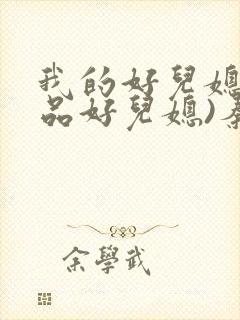 我的好兒媳
品好兒媳)秦
余學武